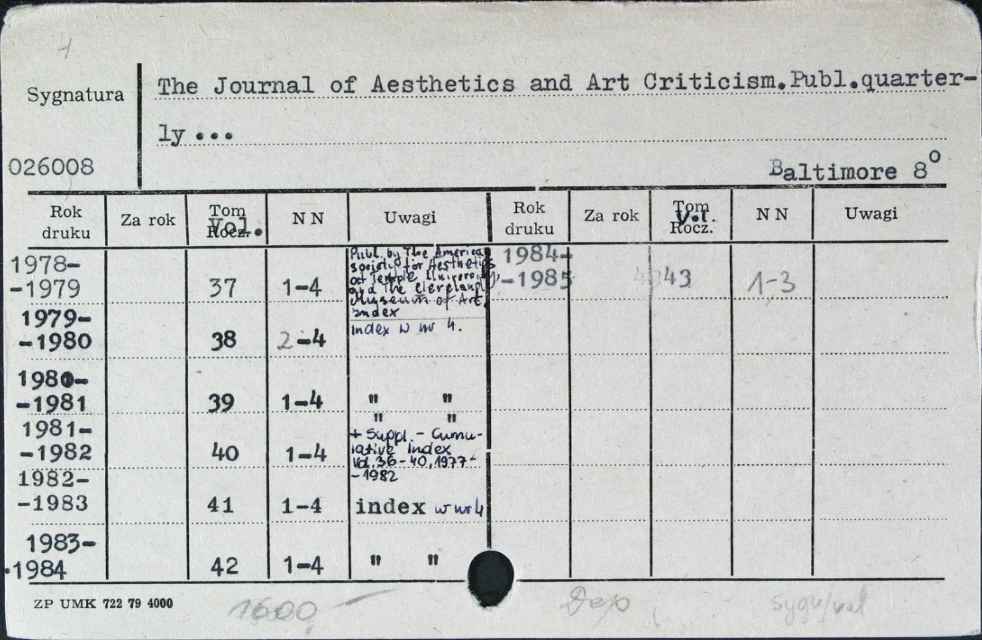 Sygnatura
The Journal of Aesthetics and Art Criticism.Publ.quarter-
ly ...
026008
Baltimore 8°
Rok druku Za rok Tom Vol. Rocz. N N Uwagi Rok druku Za rok Tom Vol. Rocz. N N Uwagi
1978-
-1979 37 1-4
Publ. by The America
for Aesthetics
at Temple
and The
Museum of Art.
Index
1984-
-1985 43 1-3
1979-
-1980 38 2-4 index w nr 4.
1980-
-1981 39 1-4 " "
1981- " "
-1982 40 1-4
+ Suppl. - Cumu-
lative Index
Vol. 36-40, 1977-
-1982
1982-
-1983 41 1-4 index w nr 4
1983-
-1984 42 1-4 " "
ZP UMK 722 79 4000
1600